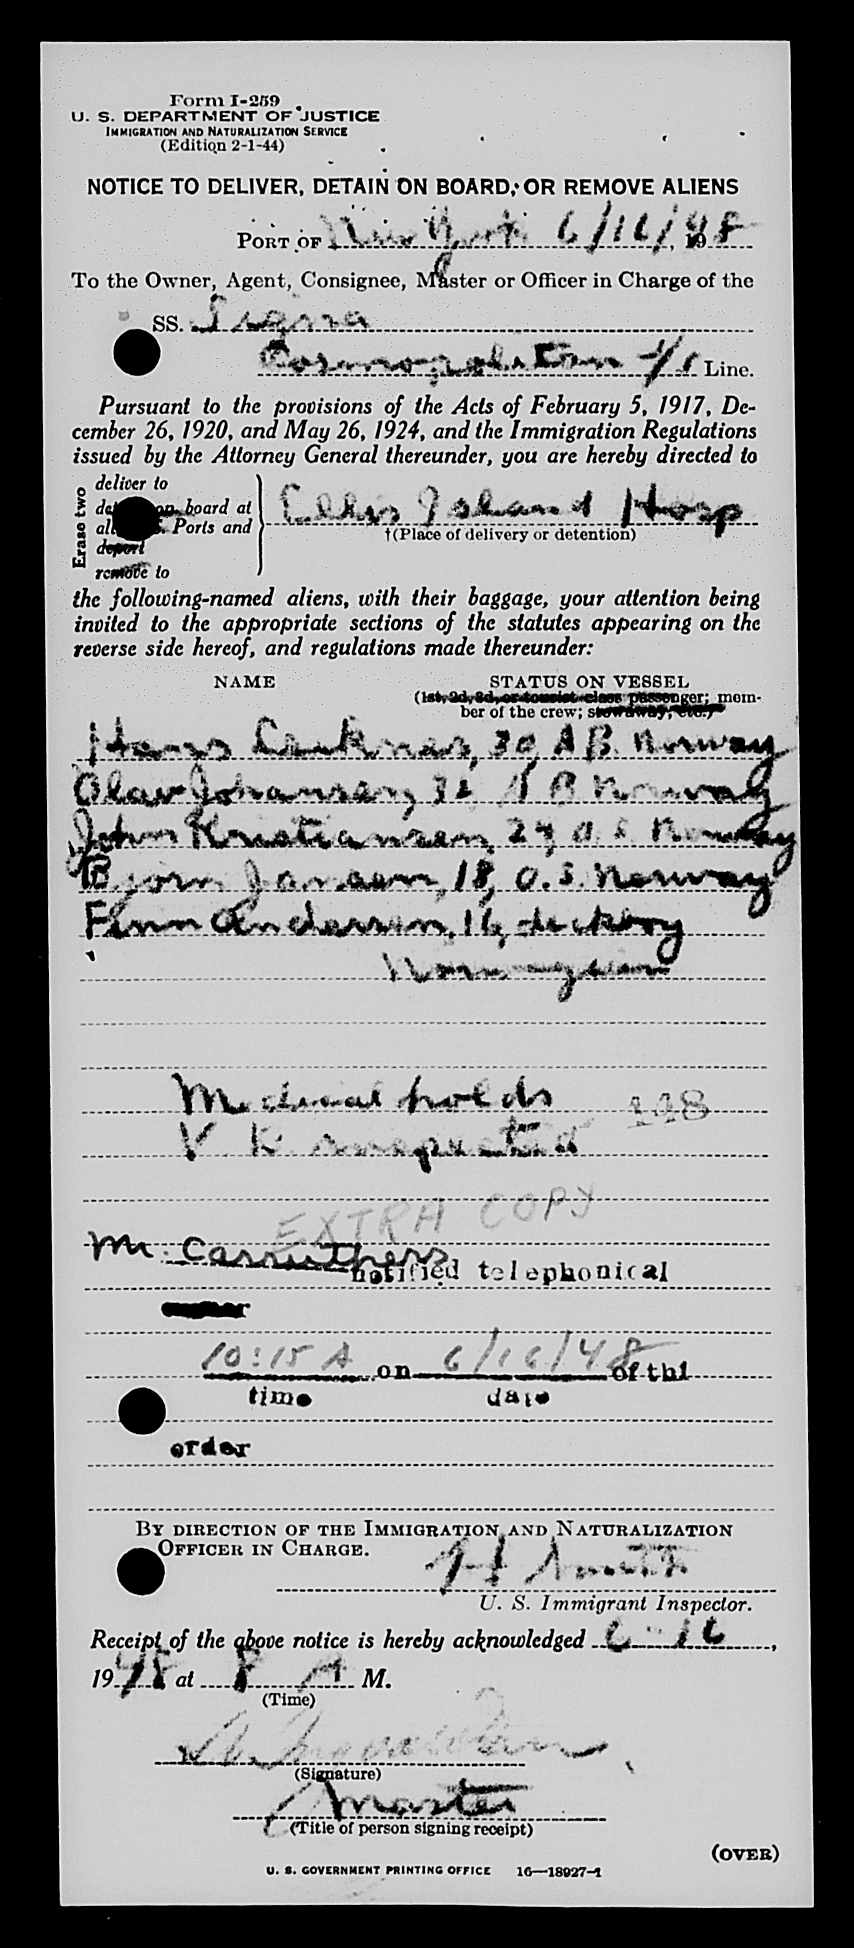 Form I-259
U. S. DEPARTMENT OF JUSTICE
IMMIGRATION AND NATURALIZATION SERVICE
(Edition 2-1-44)
NOTICE TO DELIVER, DETAIN ON BOARD, OR REMOVE ALIENS
PORT OF New York 6/16/, 1948
To the Owner, Agent, Consignee, Master or Officer in Charge of the
SS. Signa
Cosmopolitan S/S Line.
Pursuant to the provisions of the Acts of February 5, 1917, De-
cember 26, 1920, and May 26, 1924, and the Immigration Regulations
issued by the Attorney General thereunder, you are hereby directed to
Erase two
deliver to
on board at
Ports and
deport
remove to
Ellis Island Hosp
†(Place of delivery or detention)
the following-named aliens, with their baggage, your attention being
invited to the appropriate sections of the statutes appearing on the
reverse side hereof, and regulations made thereunder:
NAME STATUS ON VESSEL
(1st, 2d, 3d, or tourist class passenger; mem-
ber of the crew; stowaway, etc.)
Hans 30, A B. Norway
Olav Johansen, 32 A B Norway
John Kristiansen, 24, O. S. Norway
Bjorn Jansen, 18, O.S. Norway
Finn Andersen, 16, deckboy
Norwegian
Medical holds
V. D. suspected
EXTRA COPY
Mr. Carruthers
notified telephonical
10:15 A on 6/16/48 of thi
time date
order
BY DIRECTION OF THE IMMIGRATION AND NATURALIZATION
OFFICER IN CHARGE.
H Smith
U. S. Immigrant Inspector.
Receipt of the above notice is hereby acknowledged 6-16,
1948 at 8 A M.
(Time)
(Signature)
Master
(Title of person signing receipt)
(OVER)
U. S. GOVERNMENT PRINTING OFFICE 16—18927-1